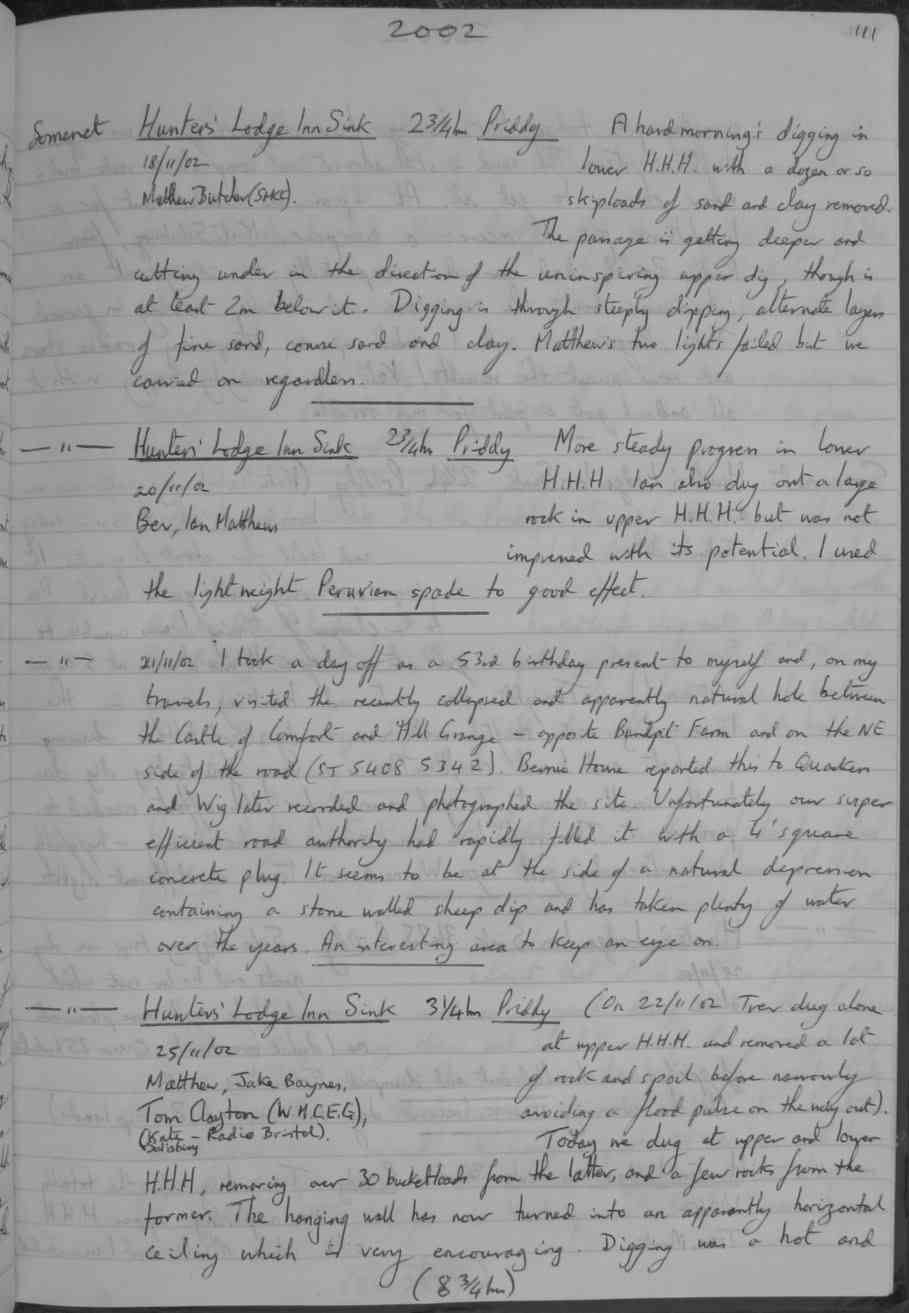 2002
111
Somerset Hunters' Lodge Inn Sink 2 3/4 hr Priddy A hard morning's digging in
18/11/02 lower H.H.H. with a dozen or so
Matthew Butcher (SMCC). skiploads of sand and clay removed.
The passage is getting deeper and
cutting under in the direction of the uninspiring upper dig, though is
at least 2m below it. Digging is through steeply dipping, alternate layers
of fine sand, coarse sand and clay. Matthew's two lights failed but we
carried on regardless.
— " — Hunters' Lodge Inn Sink 2 3/4 hr Priddy More steady progress in lower
20/11/02 H.H.H. Ian also dug out a large
Bev, Ian Matthews rock in upper H.H.H. but was not
impressed with its potential. I used
the lightweight Peruvian spade to good effect.
— " — 21/11/02 I took a day off as a 53rd birthday present to myself and, on my
travels, visited the recently collapsed and apparently natural hole between
the Castle of Comfort and Hill Grange – opposite Bendpit Farm and on the NE
side of the road (ST 5408 5342). Bernie House reported this to Quackers
and Wig later recorded and photographed the site. Unfortunately our super
efficient road authority had rapidly filled it with a 4' square
concrete plug. It seems to be at the side of a natural depression
containing a stone walled sheep dip and has taken plenty of water
over the years. An interesting area to keep an eye on.
— " — Hunters' Lodge Inn Sink 3 1/4 hr Priddy (On 22/11/02 Trev dug alone
25/11/02 at upper H.H.H. and removed a lot
Matthew, Jake Baynes, of rock and spoil before narrowly
Tom Clayton (W.M.C.E.G), avoiding a flood pulse on the way out).
(Kate Salisbury – Radio Bristol). Today we dug at upper and lower
H.H.H, removing over 30 bucketloads from the latter, and a few rocks from the
former. The hanging wall has now turned into an apparently horizontal
ceiling which is very encouraging. Digging was a hot and
(8 3/4 hr)